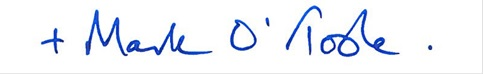 + Mark O'Toole.